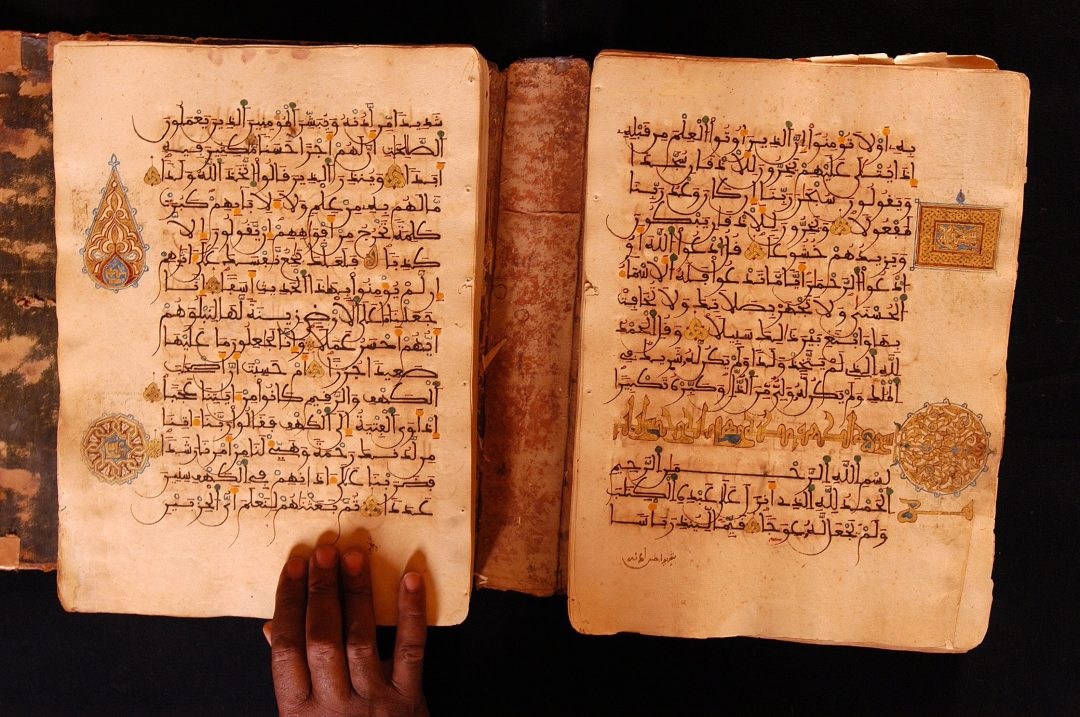 به أو لا تومنوا إن الذين أوتوا العلم من قبله
إذا يتلى عليهم يخرون للأذقان سجدا
ويقولون سبحن ربنا إن كان وعد ربنا
لمفعولا ويخرون للأذقان يبكون
ويزيدهم خشوعا قل ادعوا الله أو
ادعوا الرحمن أيا ما تدعوا فله الأسماء
الحسنى ولا تجهر بصلاتك ولا تخافت
بها وابتغ بين ذلك سبيلا وقل الحمد
لله الذي لم يتخذ ولدا ولم يكن له شريك في
الملك ولم يكن له ولي من الذل وكبره تكبيرا
بسم الله الرحمن الرحيم
الحمد لله الذي أنزل على عبده الكتب
ولم يجعل له عوجا قيما لينذر بأسا
شديدا من لدنه ويبشر المومنين الذين يعملون
الصلحت أن لهم أجرا حسنا مكثين فيه
أبدا وينذر الذين قالوا اتخذ الله ولدا
ما لهم به من علم ولا لأبائهم كبرت
كلمة تخرج من أفوههم إن يقولون إلا
كذبا فلعلك بخع نفسك على ءاثرهم
إن لم يومنوا بهذا الحديث أسفا إنا
جعلنا ما على الأرض زينة لها لنبلوهم
أيهم أحسن عملا وإنا لجعلون ما عليها
صعيدا جرزا أم حسبت أن أصحب
الكهف والرقيم كانوا من ءايتنا عجبا
إذ أوى الفتية إلى الكهف فقالوا ربنا ءاتنا
من لدنك رحمة وهيئ لنا من أمرنا رشدا
فضربنا على ءاذانهم في الكهف سنين
عددا ثم بعثنهم لنعلم أي الحزبين